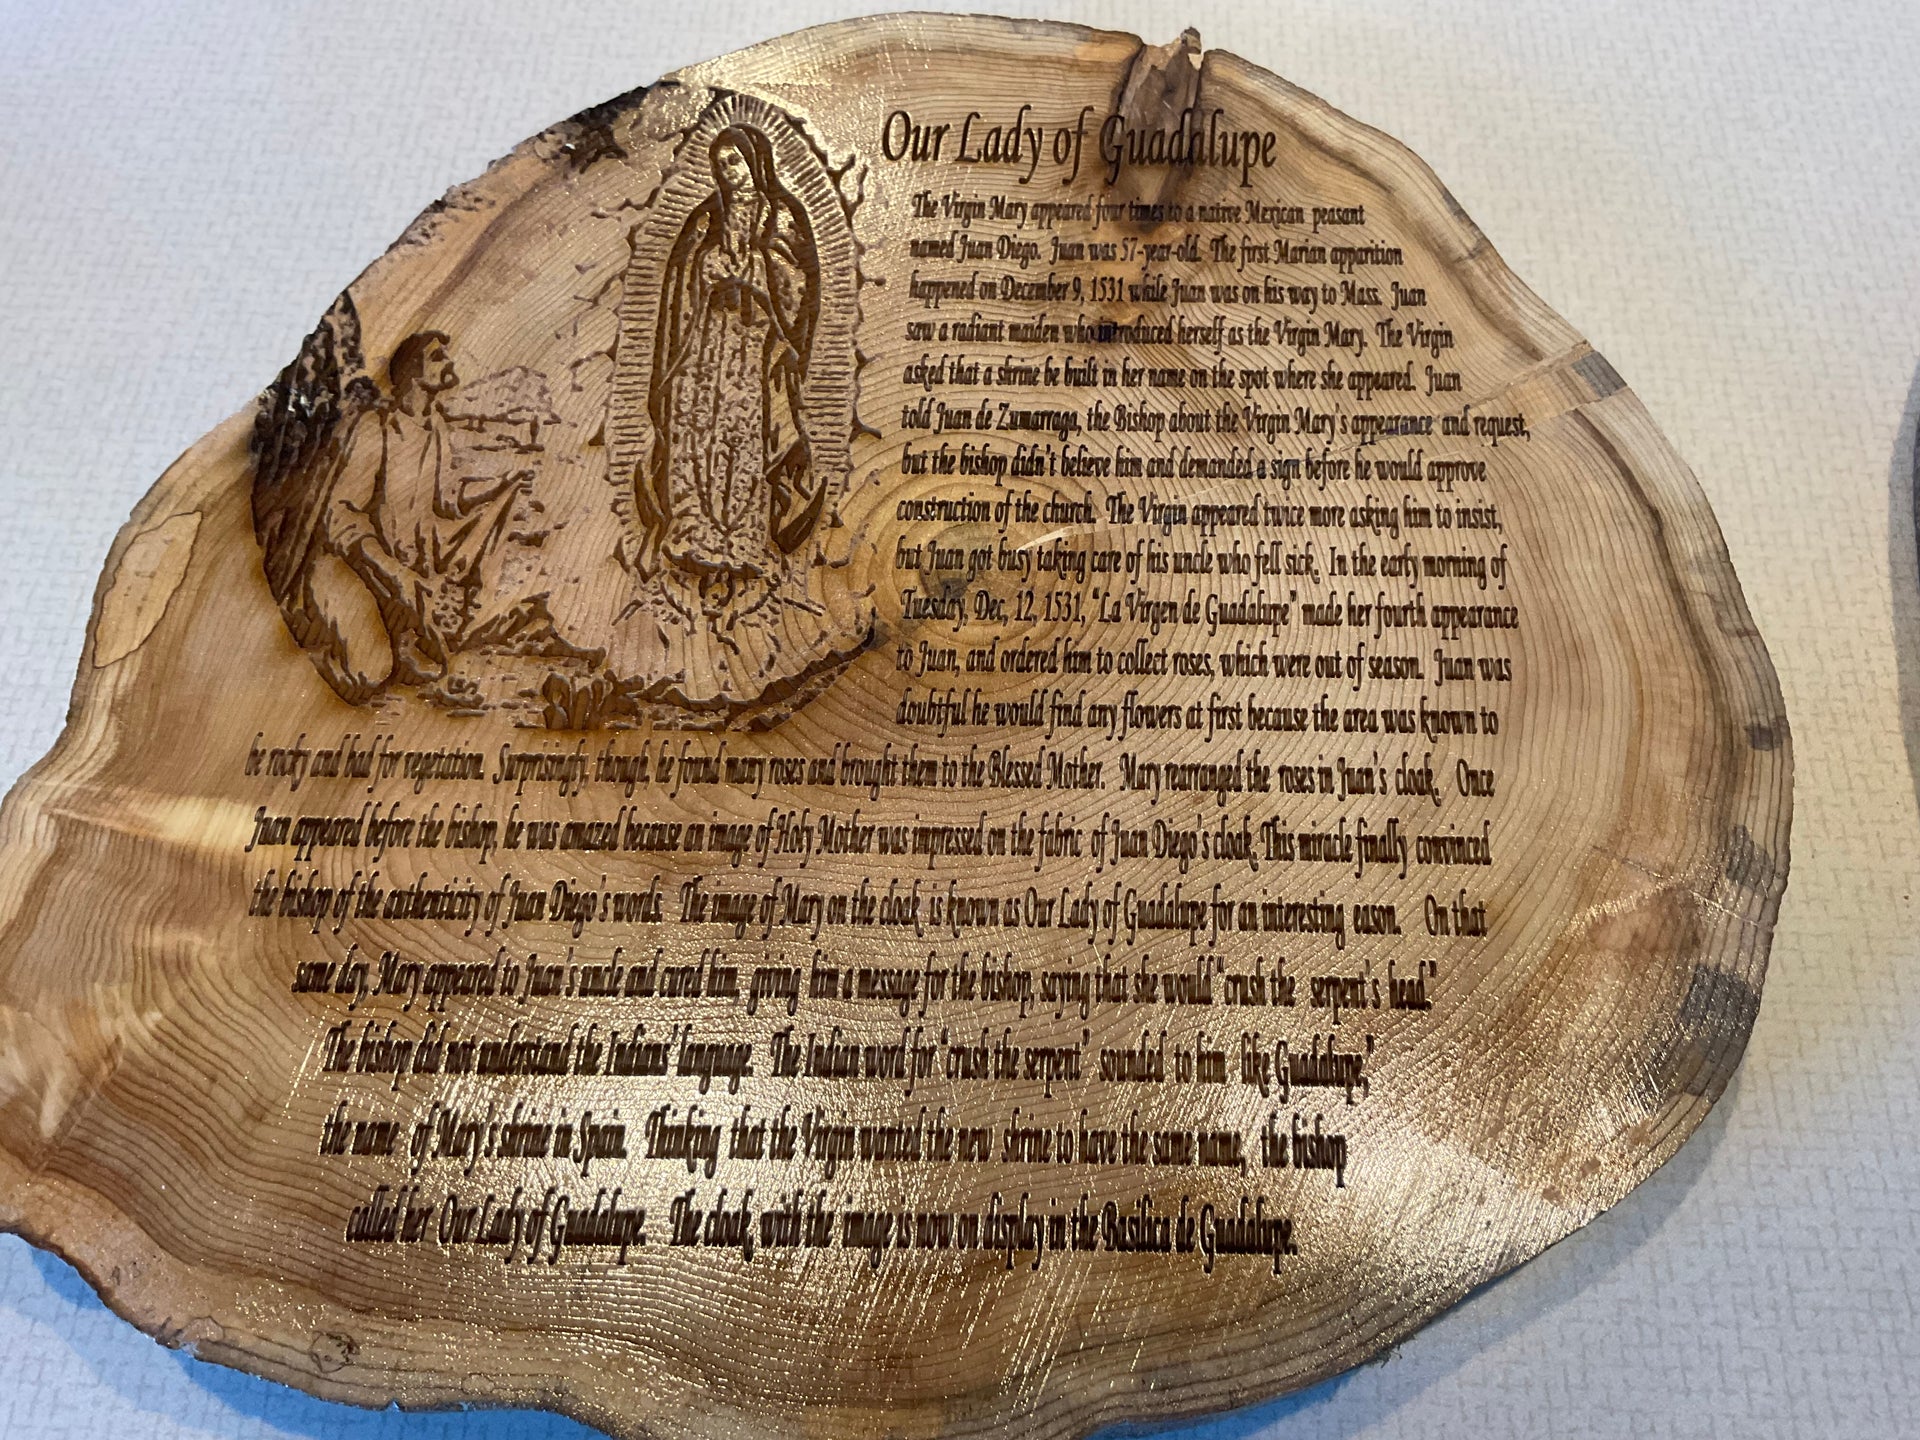 Our Lady of Guadalupe
The Virgin Mary appeared four times to a native Mexican peasant
named Juan Diego. Juan was 57-year-old. The first Marian apparition
happened on December 9, 1531 while Juan was on his way to Mass. Juan
saw a radiant maiden who introduced herself as the Virgin Mary. The Virgin
asked that a shrine be built in her name on the spot where she appeared. Juan
told Juan de Zumarraga, the Bishop about the Virgin Mary's appearance and request,
but the bishop didn't believe him and demanded a sign before he would approve
construction of the church. The Virgin appeared twice more asking him to insist,
but Juan got busy taking care of his uncle who fell sick. In the early morning of
Tuesday, Dec, 12, 1531, "La Virgen de Guadalupe" made her fourth appearance
to Juan, and ordered him to collect roses, which were out of season. Juan was
doubtful he would find any flowers at first because the area was known to
be rocky and bad for vegetation. Surprisingly, though, he found many roses and brought them to the Blessed Mother. Mary rearranged the roses in Juan's cloak. Once
Juan appeared before the bishop, he was amazed because an image of Holy Mother was impressed on the fabric of Juan Diego's cloak. This miracle finally convinced
the bishop of the authenticity of Juan Diego's words. The image of Mary on the cloak is known as Our Lady of Guadalupe for an interesting eason. On that
same day, Mary appeared to Juan's uncle and cured him, giving him a message for the bishop, saying that she would "crush the serpent's head."
The bishop did not understand the Indians' language. The Indian word for "crush the serpent" sounded to him like Guadalupe,"
the name of Mary's shrine in Spain. Thinking that the Virgin wanted the new shrine to have the same name, the bishop
called her Our Lady of Guadalupe. The cloak with the image is now on display in the Basilica de Guadalupe.